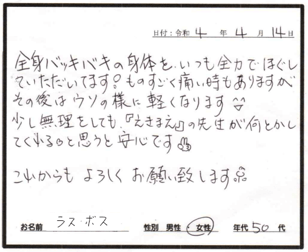 日付：令和 4 年 4 月 14 日
全身バッキバキの身体を、いつも全力でほぐし
ていただいてます！ものすごく痛い時もありますが
その後はウソの様に軽くなります
少し無理をしても、『えきまえ』の先生が何とかし
てくれると思うと安心です
これからも よろしく お願い致します
お名前 ラス・ボス 性別 男性・女性 年代 50 代